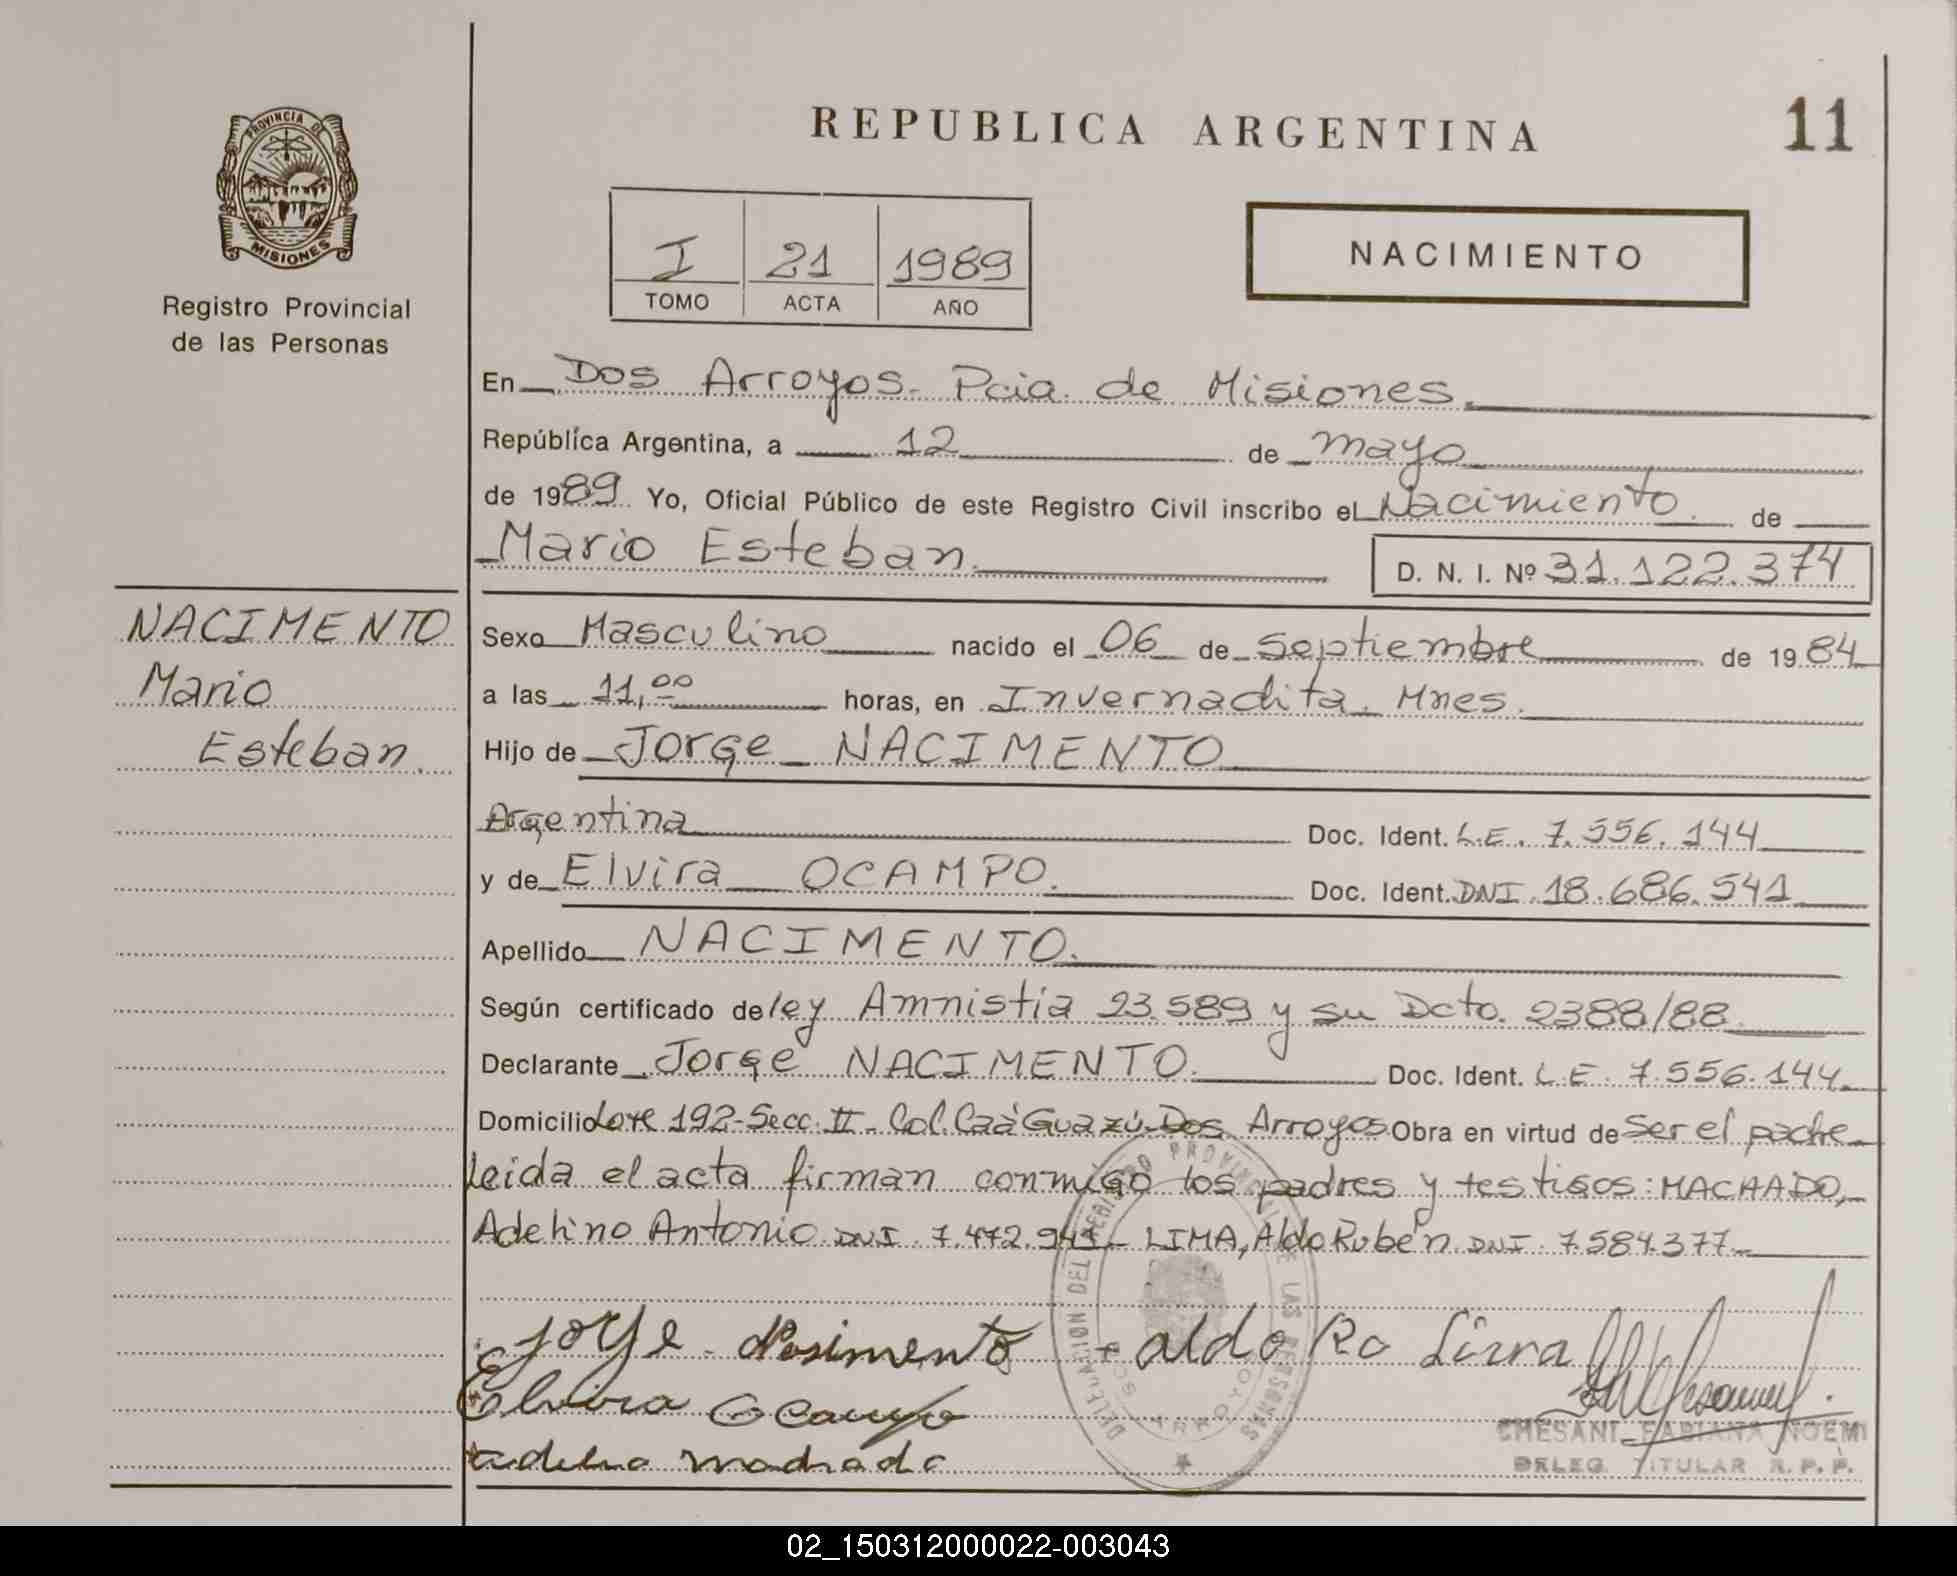 REPUBLICA ARGENTINA
11
PROVINCIA DE
MISIONES
Registro Provincial
de las Personas
I 21 1989
TOMO ACTA AÑO
NACIMIENTO
En Dos Arroyos - Pcia. de Misiones.
República Argentina, a 12 de mayo
de 1989. Yo, Oficial Público de este Registro Civil inscribo el Nacimiento. de
Mario Esteban.
D. N. I. Nº 31.122.374
NACIMENTO
Mario
Esteban.
Sexo Masculino nacido el 06 de septiembre de 1984
a las 11,00 horas, en Invernadita. Mnes.
Hijo de Jorge NACIMENTO
Argentina Doc. Ident. L.E. 7.556.144
y de Elvira OCAMPO. Doc. Ident. DNI 18.686.541
Apellido NACIMENTO.
Según certificado de ley Amnistia 23.589 y su Dcto. 2388/88.
Declarante Jorge NACIMENTO. Doc. Ident. L.E. 7.556.144
Domicilio Lote 192-Secc. II - Col. Caá Guazú-Dos Arroyos Obra en virtud de ser el padre
Leida el acta firman conmigo los padres y testigos: MACHADO,
Adelino Antonio DNI 7.472.941 - LIMA, Aldo Rubén DNI 7.584.377
Jorge Nasimento
aldo Ro Lima
Elvira Ocampo
DELEGACION DEL REGISTRO PROVINCIAL DE LAS PERSONAS
ARROYOS
CHESANI FABIANA NOEMI
DELEG. TITULAR R. P. P.
02_150312000022-003043